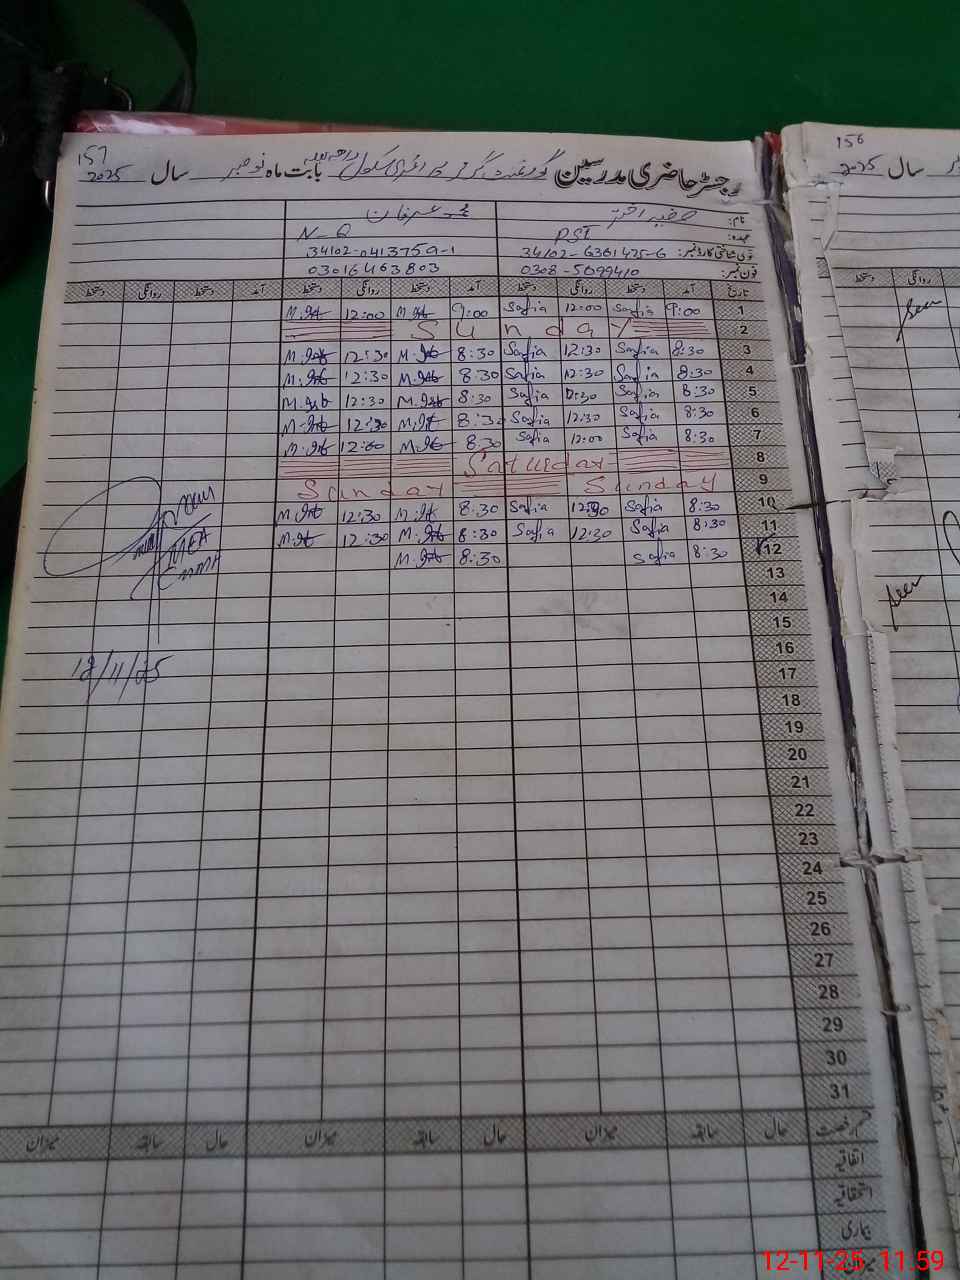 157
رجسٹر حاضری مدرسین گورنمنٹ گرلز پرائمری سکول بابت ماہ نومبر سال 2025
نام: صفیہ اختر محمد عرفان
عہدہ: PST N-Q
قومی شناختی کارڈ نمبر: 34102-6361425-6 34102-0413759-1
فون نمبر: 0308-5699410 03016463803
تاریخ آمد دستخط روانگی دستخط آمد دستخط روانگی دستخط آمد دستخط روانگی دستخط
1 9:00 Safia 12:00 Safia 9:00 12:00
2 Sunday
3 8:30 Safia 12:30 Safia 8:30 12:30
4 8:30 Safia 12:30 Safia 8:30 12:30
5 8:30 Safia 12:30 Safia 8:30 12:30
6 8:30 Safia 12:30 Safia 8:30 12:30
7 8:30 Safia 12:00 Safia 8:30 12:00
8 Saturday
9 Sunday Sunday
10 8:30 Safia 12:30 Safia 8:30 12:30
11 8:30 Safia 12:30 Safia 8:30 12:30
12 8:30 Safia 8:30
MEA
12/11/25
13
14
15
16
17
18
19
20
21
22
23
24
25
26
27
28
29
30
31
قسم رخصت حال سابقہ میزان حال سابقہ میزان حال سابقہ میزان
اتفاقیہ
استحقاقیہ
بیماری
میزان
156
سال 2025
آمد روانگی دستخط
Seen
Seen
12-11-25 11:59